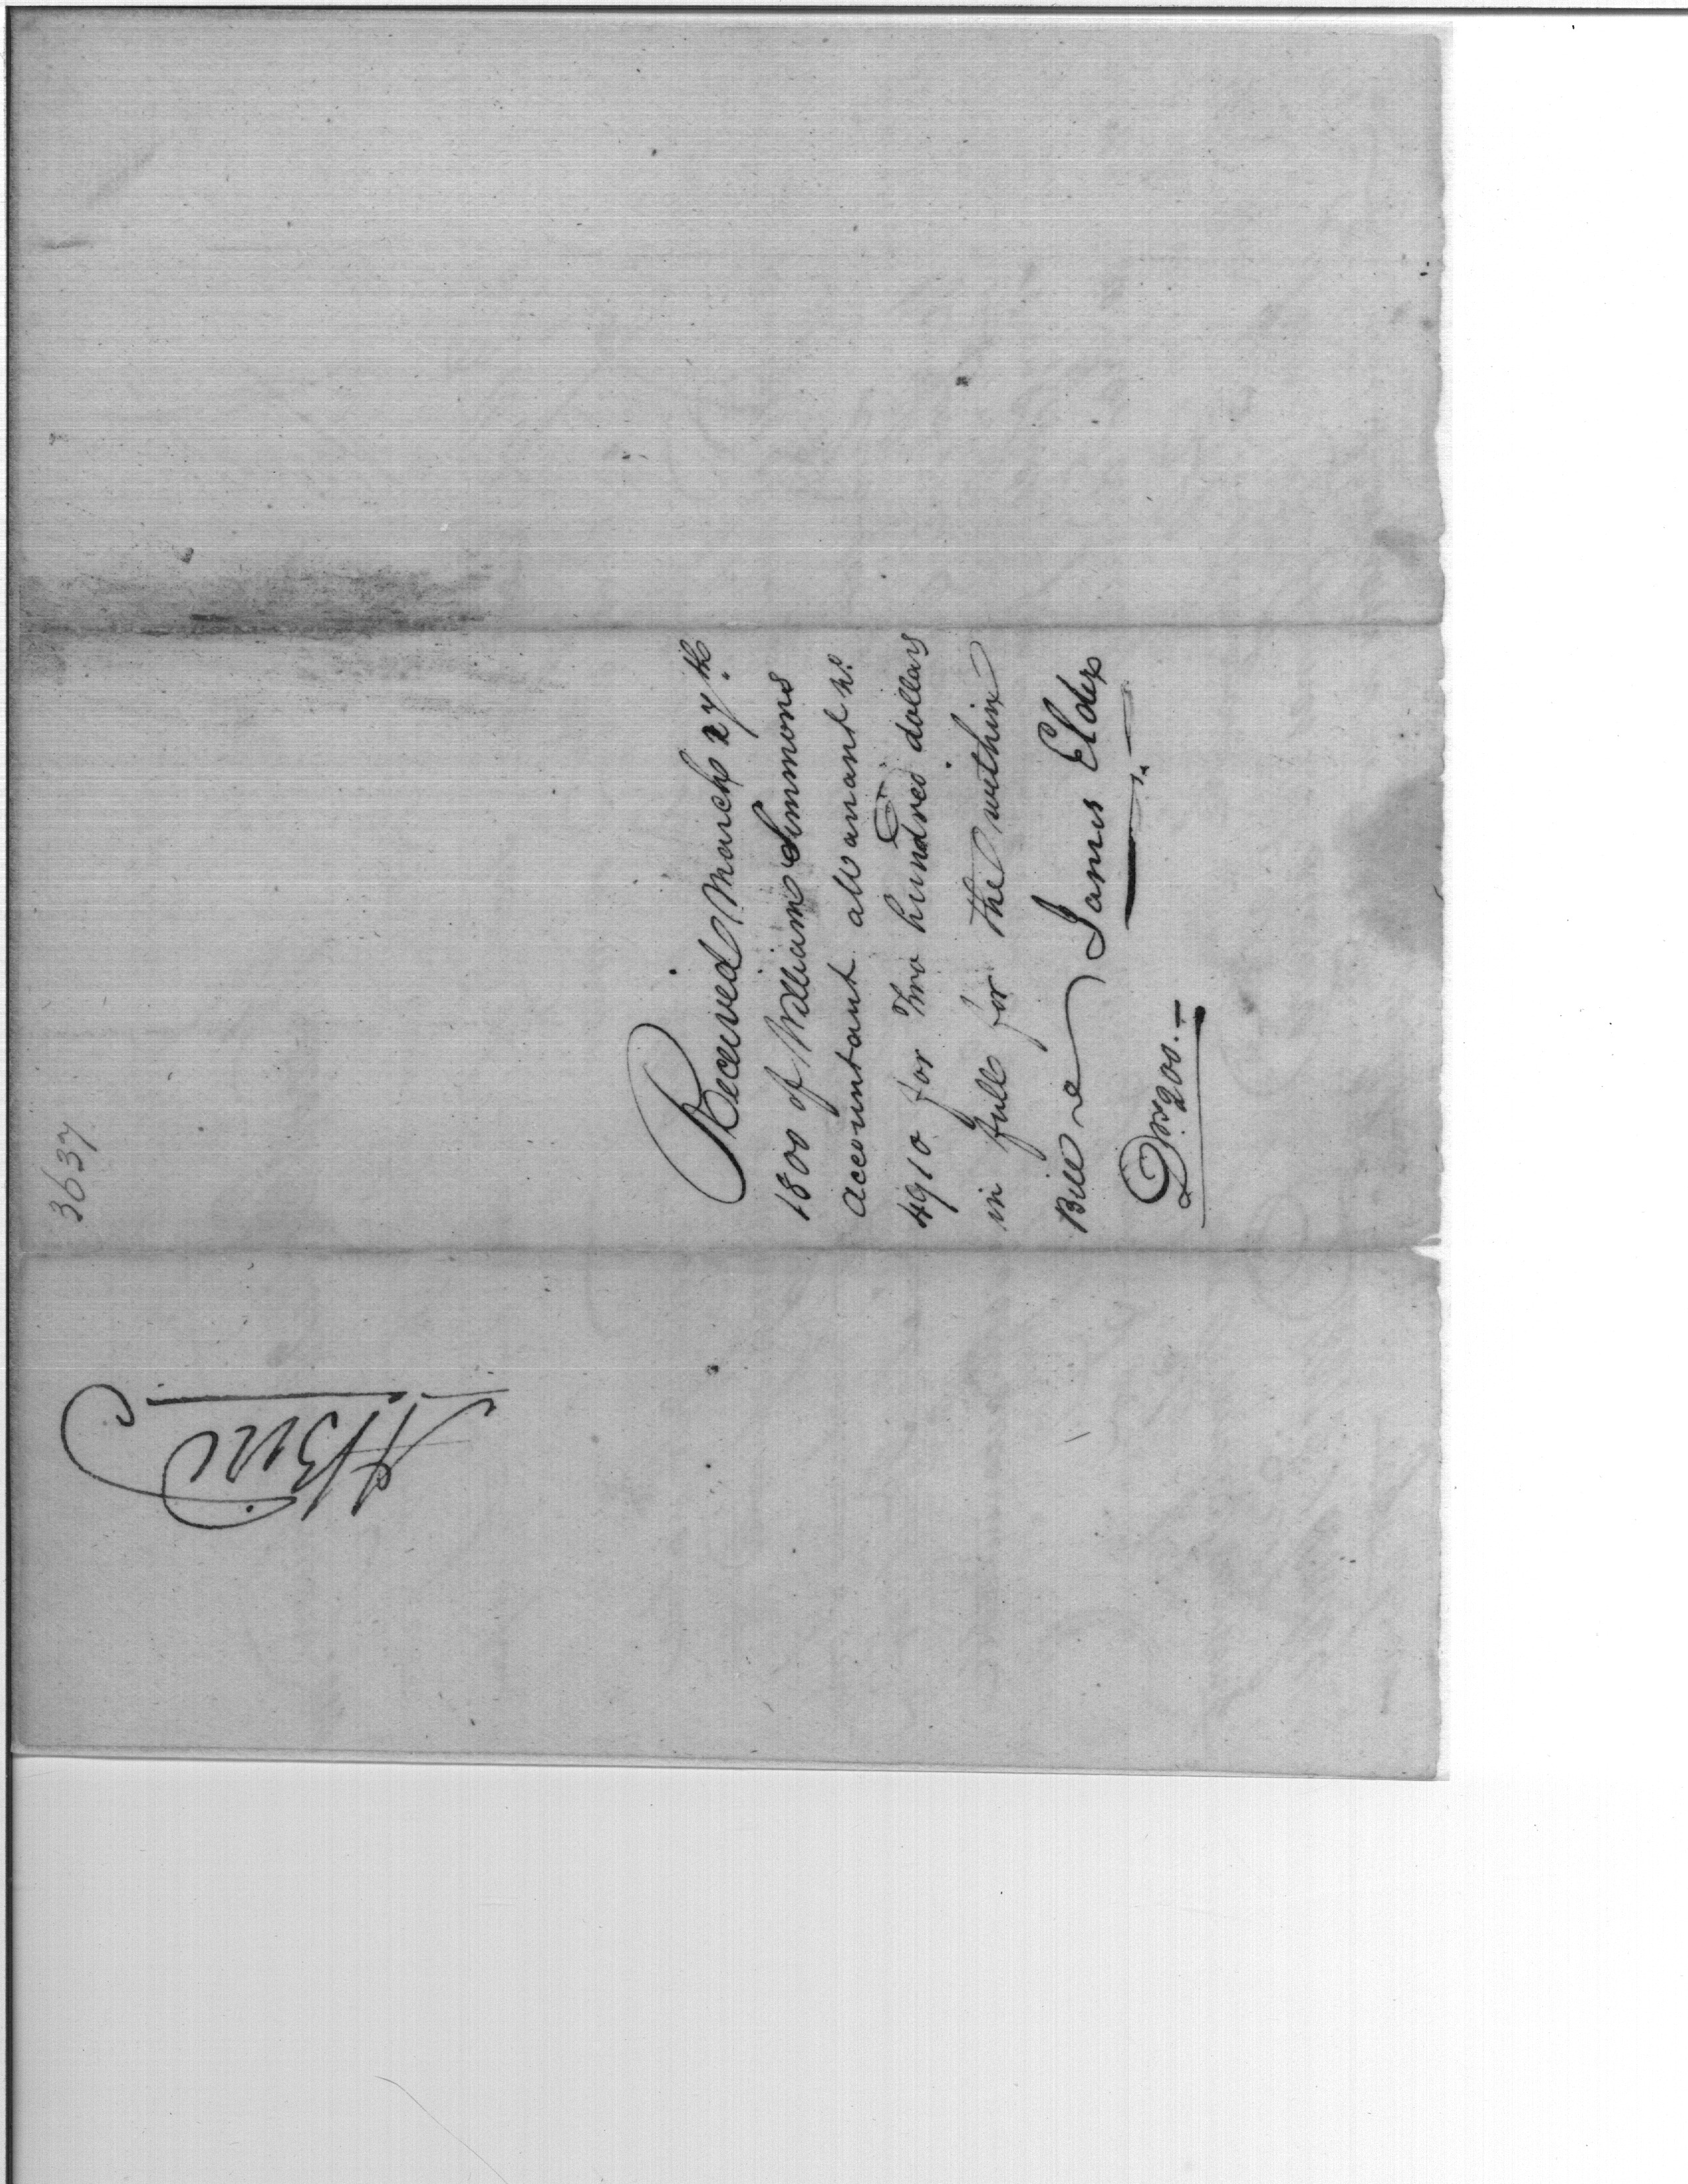 3637
Received March 27th
1800 of William Simmons
Accountant a Warrant No
4910 for Two hundred dollars
in full for the within
Bill
James Elder
Drs 200.—
A Bill